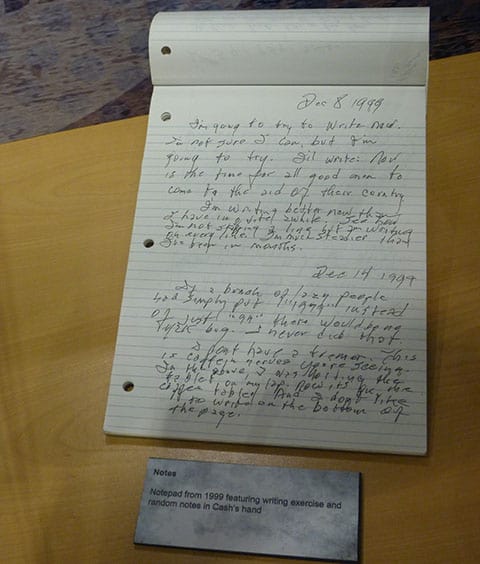 Dec 8 1999
I'm going to try to write now.
I'm not sure I can, but I'm
going to try. I'll write: Now
is the time for all good men to
come to the aid of their country
I'm writing better now than
I have in quite awhile. See how
I'm not skipping a line but I'm writing
on every line. I'm much steadier than
I've been in months.
Dec 14 1999
If a bunch of lazy people
had simply put "1999" instead
of just "99" there would be no
Y2K bug. I never did that.
I don't have a tremor. This
is caffein nerves you're seeing.
In the above I was holding the
tablet on my lap. Now it's on the
coffee table. And I don't like
to write on the bottom of
the page.
Notes
Notepad from 1999 featuring writing exercise and
random notes in Cash's hand